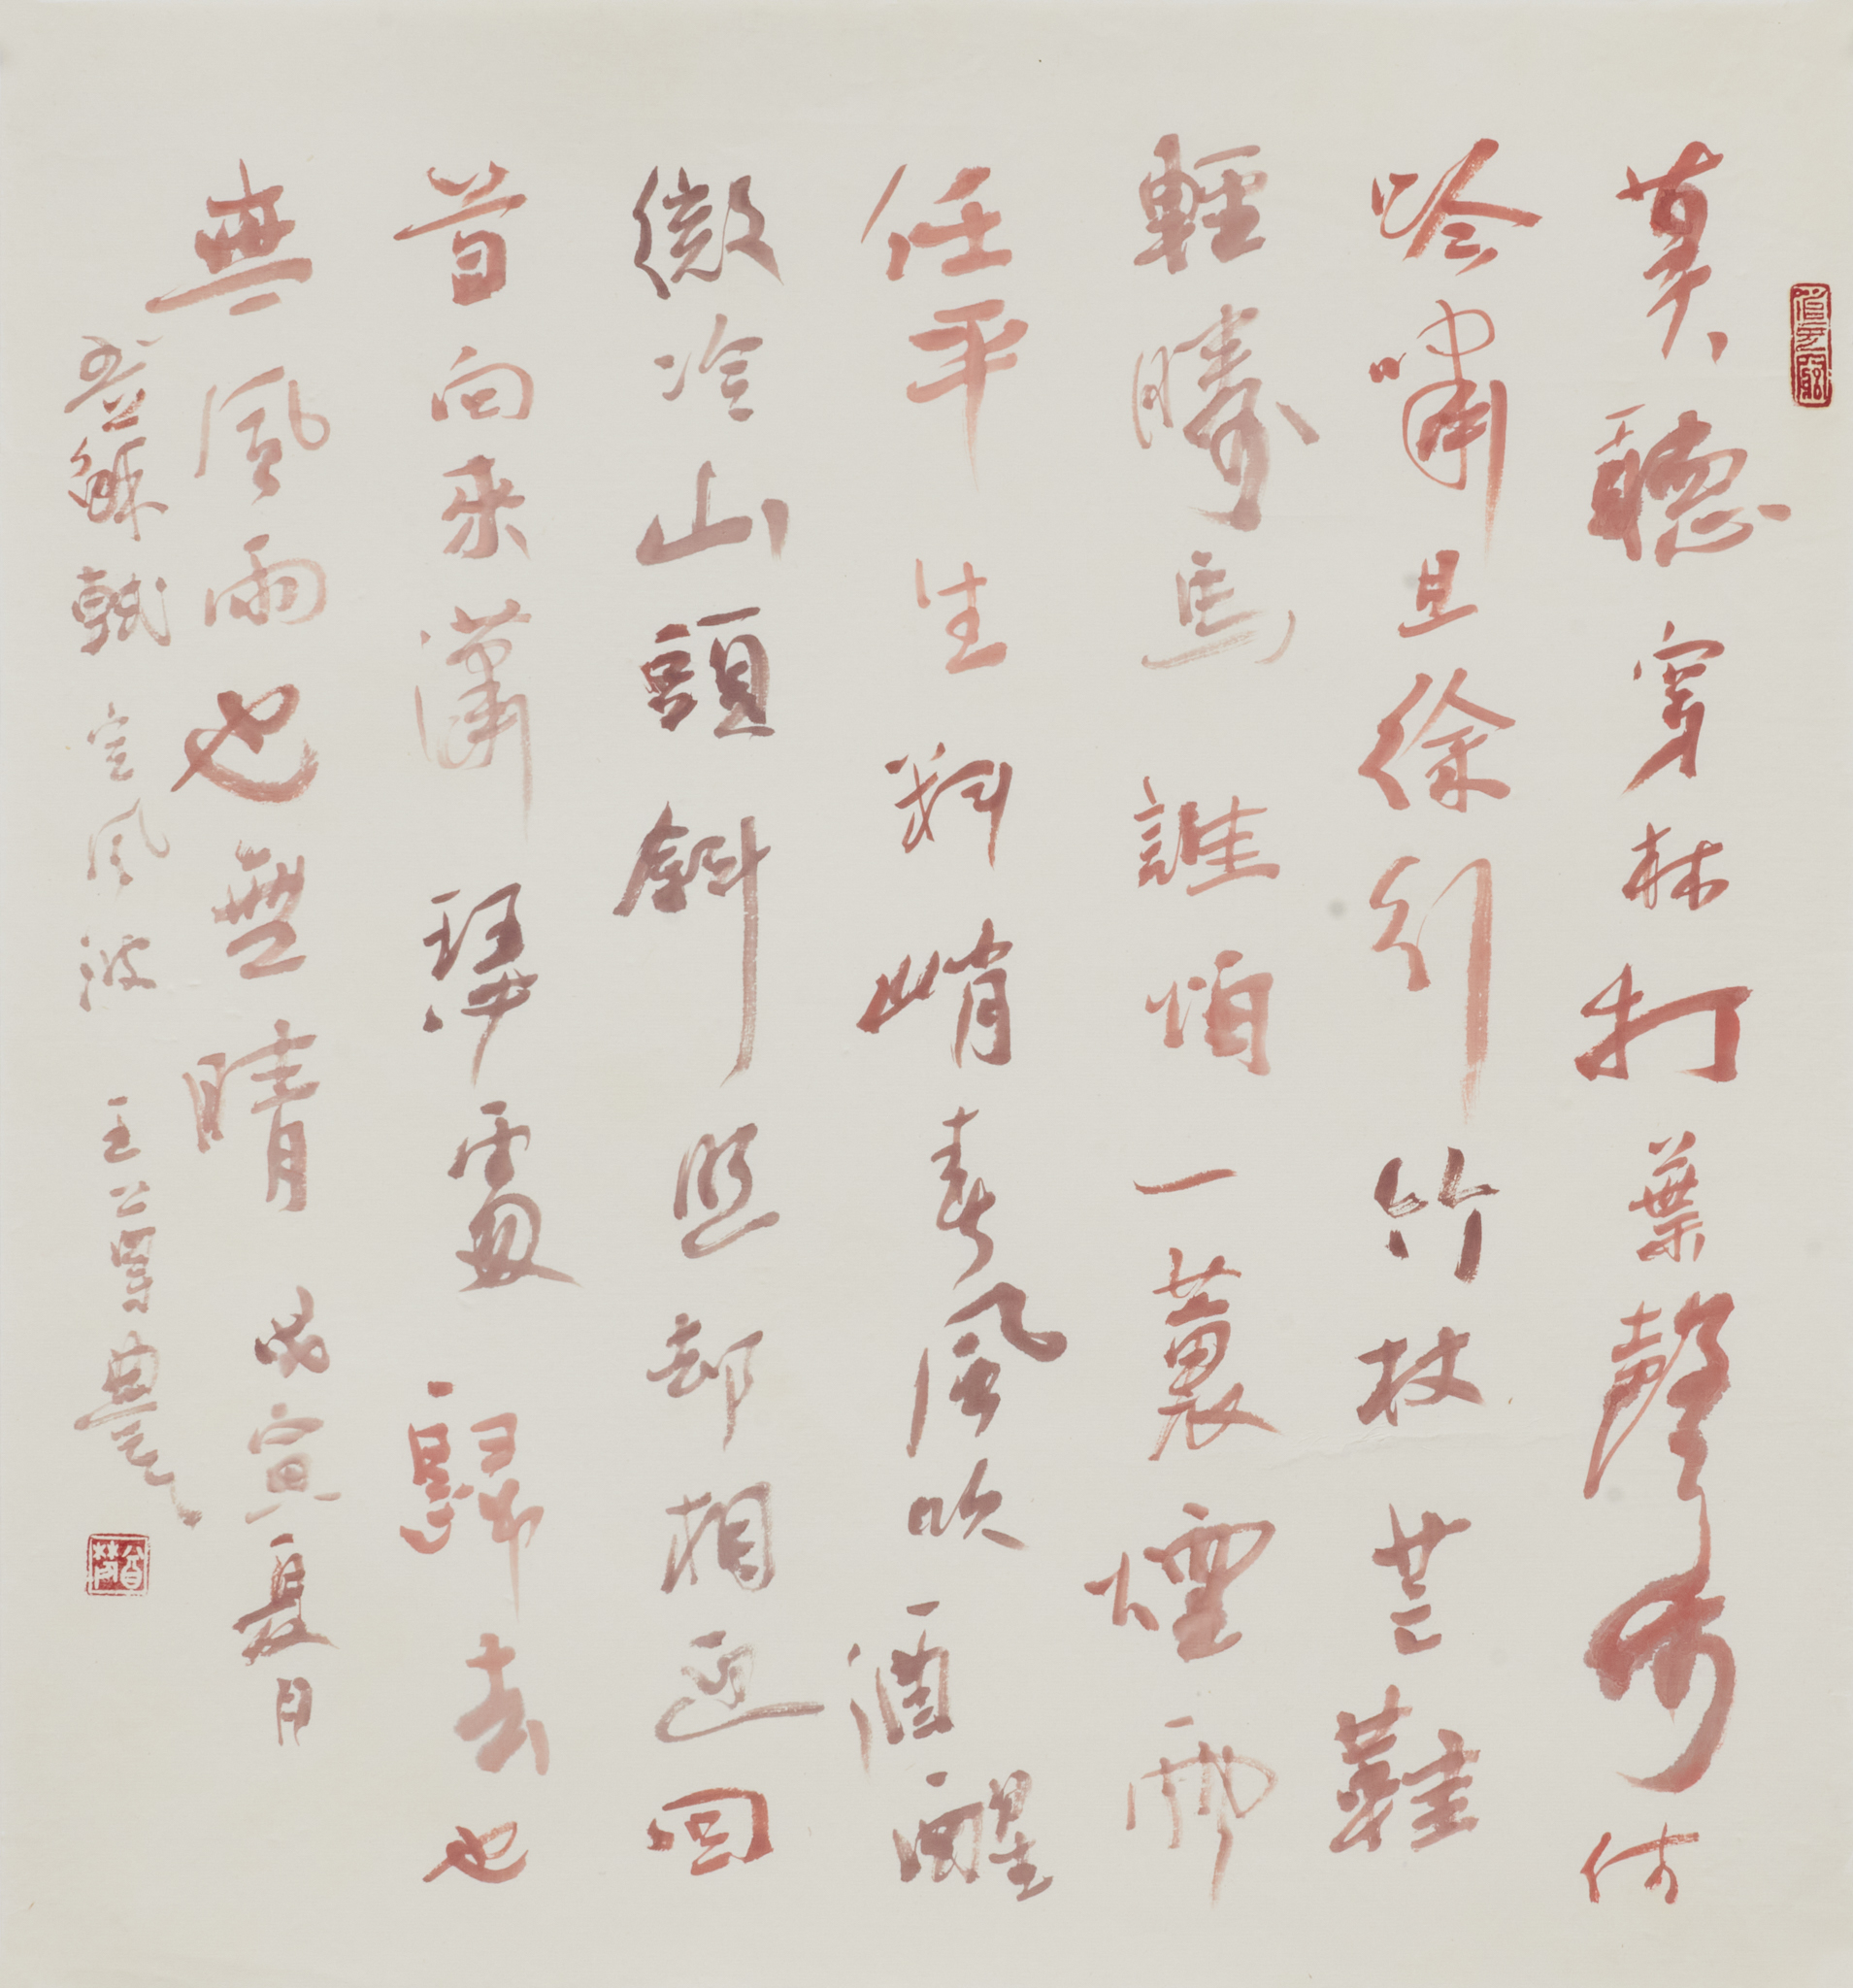 莫聽穿林打葉聲何妨
吟嘯且徐行竹杖芒鞋
輕勝馬誰怕一蓑煙雨
任平生料峭春風吹酒醒
微冷山頭斜照却相迎回
首向來瀟瑟處歸去也
無風雨也無晴 戊寅夏月
書蘇軾定風波 王